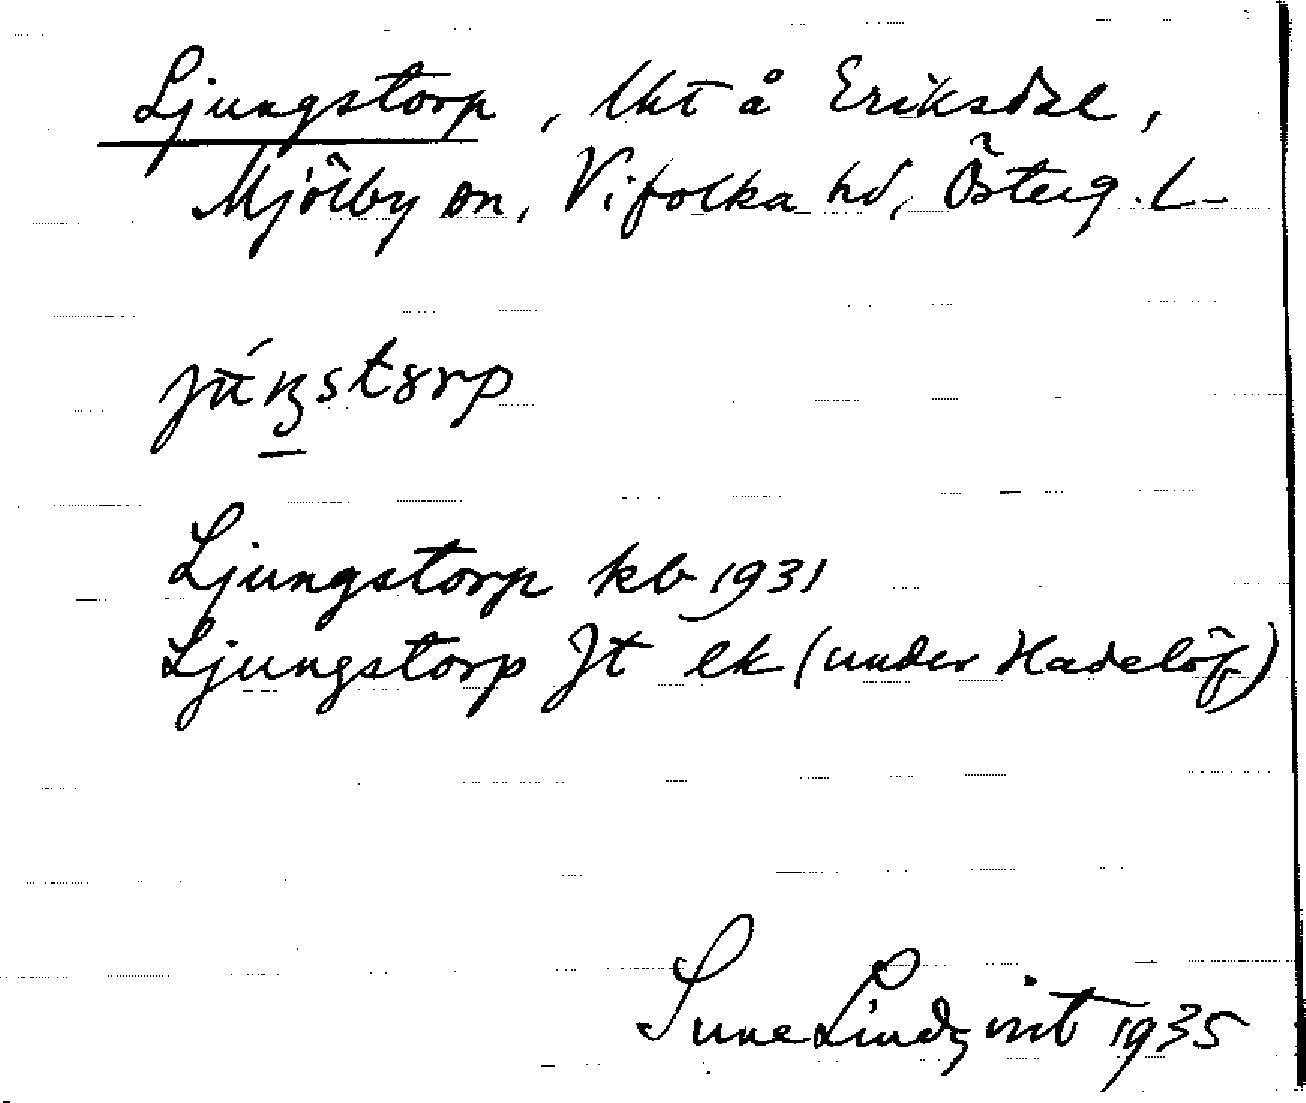 Ljungstorp, lht å Eriksdal,
Mjölby sn, Vifolka hd, Österg. l.
Ljungstorp kb 1931
Ljungstorp Jt ek (under Hadelöf)
Sune Lindqvist 1935